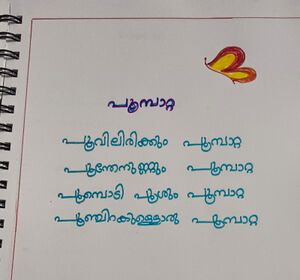 പൂമ്പാറ്റ
പൂവിലിരിക്കും പൂമ്പാറ്റ
പൂന്തേനുണ്ണും പൂമ്പാറ്റ
പൂമ്പൊടി പൂശും പൂമ്പാറ്റ
പൂഞ്ചിറകുള്ളൊരു പൂമ്പാറ്റ